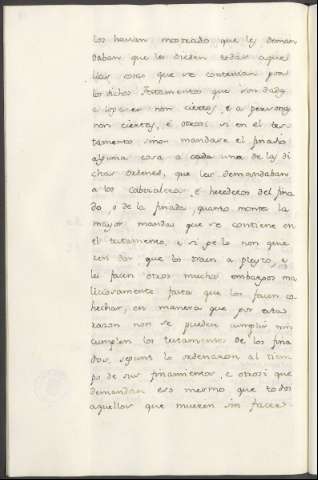 los havian mostrado que les deman
daban que les dieden todas aque
llas cosas que se contenian por
los dichos Testamentos que son dadas
e logares non ciertos, e a personas
non ciertas, e otrosi si en el tes-
tamento non mandare el finado
alguna cosa a cada una de las di
chas ordenes, que les demandaban
a los cabezaleros, e herederos del fina
do, o de la finada, quanto monta la
mayor manda que se contiene en
el testamento, e si ge lo non quie
ren dar que los traen a pleyto, e
les facen otros muchos embargos ma
liciosamente fasta que los facen co
hechar, en manera que por estas
razon non se pueden cumplir nin
cumplen los testamentos de los fina
dos, segunt lo ordenaron al tiem
po de sus finamientos, e otrosi que
demandan eso mesmo que todos
aquellos que mueren sin facer